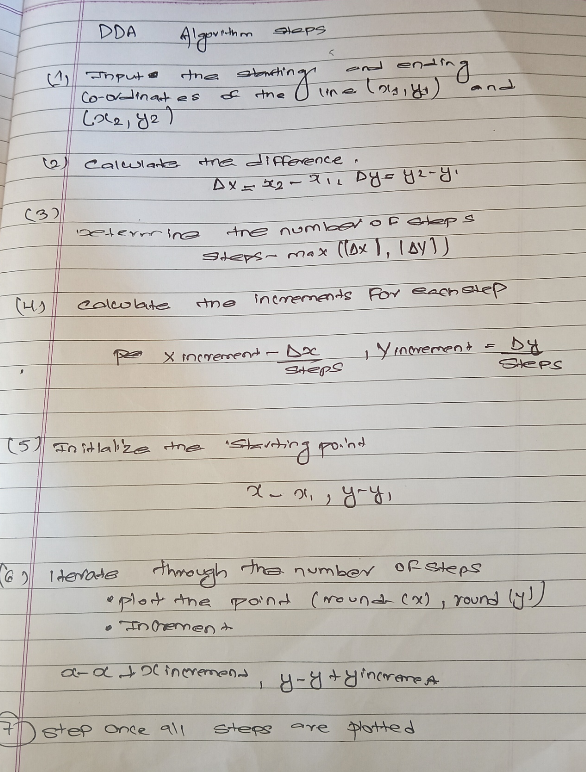 DDA Algorithm steps
(1) Input the starting and ending
co-ordinates of the line (x1, y1) and
(x2, y2)
(2) Calculate the difference.
Δx = x2 - x1, Dy = y2 - y1
(3)
Determine the number of steps
steps - max (|Δx|, |Δy|)
(4) calculate the increments for each step
x increment - Δx/steps , Y increment = Dy/steps
(5) Initialize the starting point
x - x1, y - y1
(6) Iterate through the number of steps
• plot the point (round (x), round (y))
• Increment
x - x + x increment, y - y + y increment
(7) step once all steps are plotted